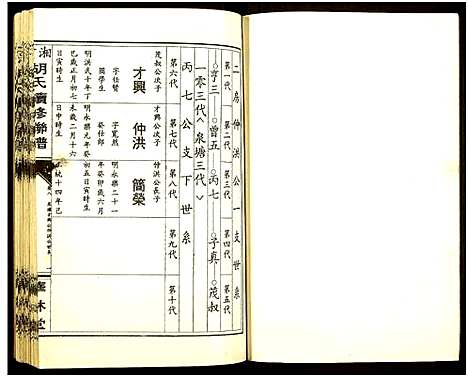 二房仲洪公一支世系
第一代 第二代 第三代 第四代 第五代
○亨三—○曾五—○丙七—○子真—○茂叔
一零三代︿泉塘三代﹀
丙七公支下世系
第六代 第七代 第八代 第九代 第十代
茂叔公次子
才興
字仕賢
國學生
明洪武十年丁
巳歲正月初七
日寅時生
才興公次子
仲洪
字寬然
癸仕郎
明永樂元年癸
未歲二月十六
日申時生
仲洪公長子
簡榮
明永樂二十一
年癸卯歲六月
初五日寅時生
統十四年己
湘胡氏續修聯譜
一
堂